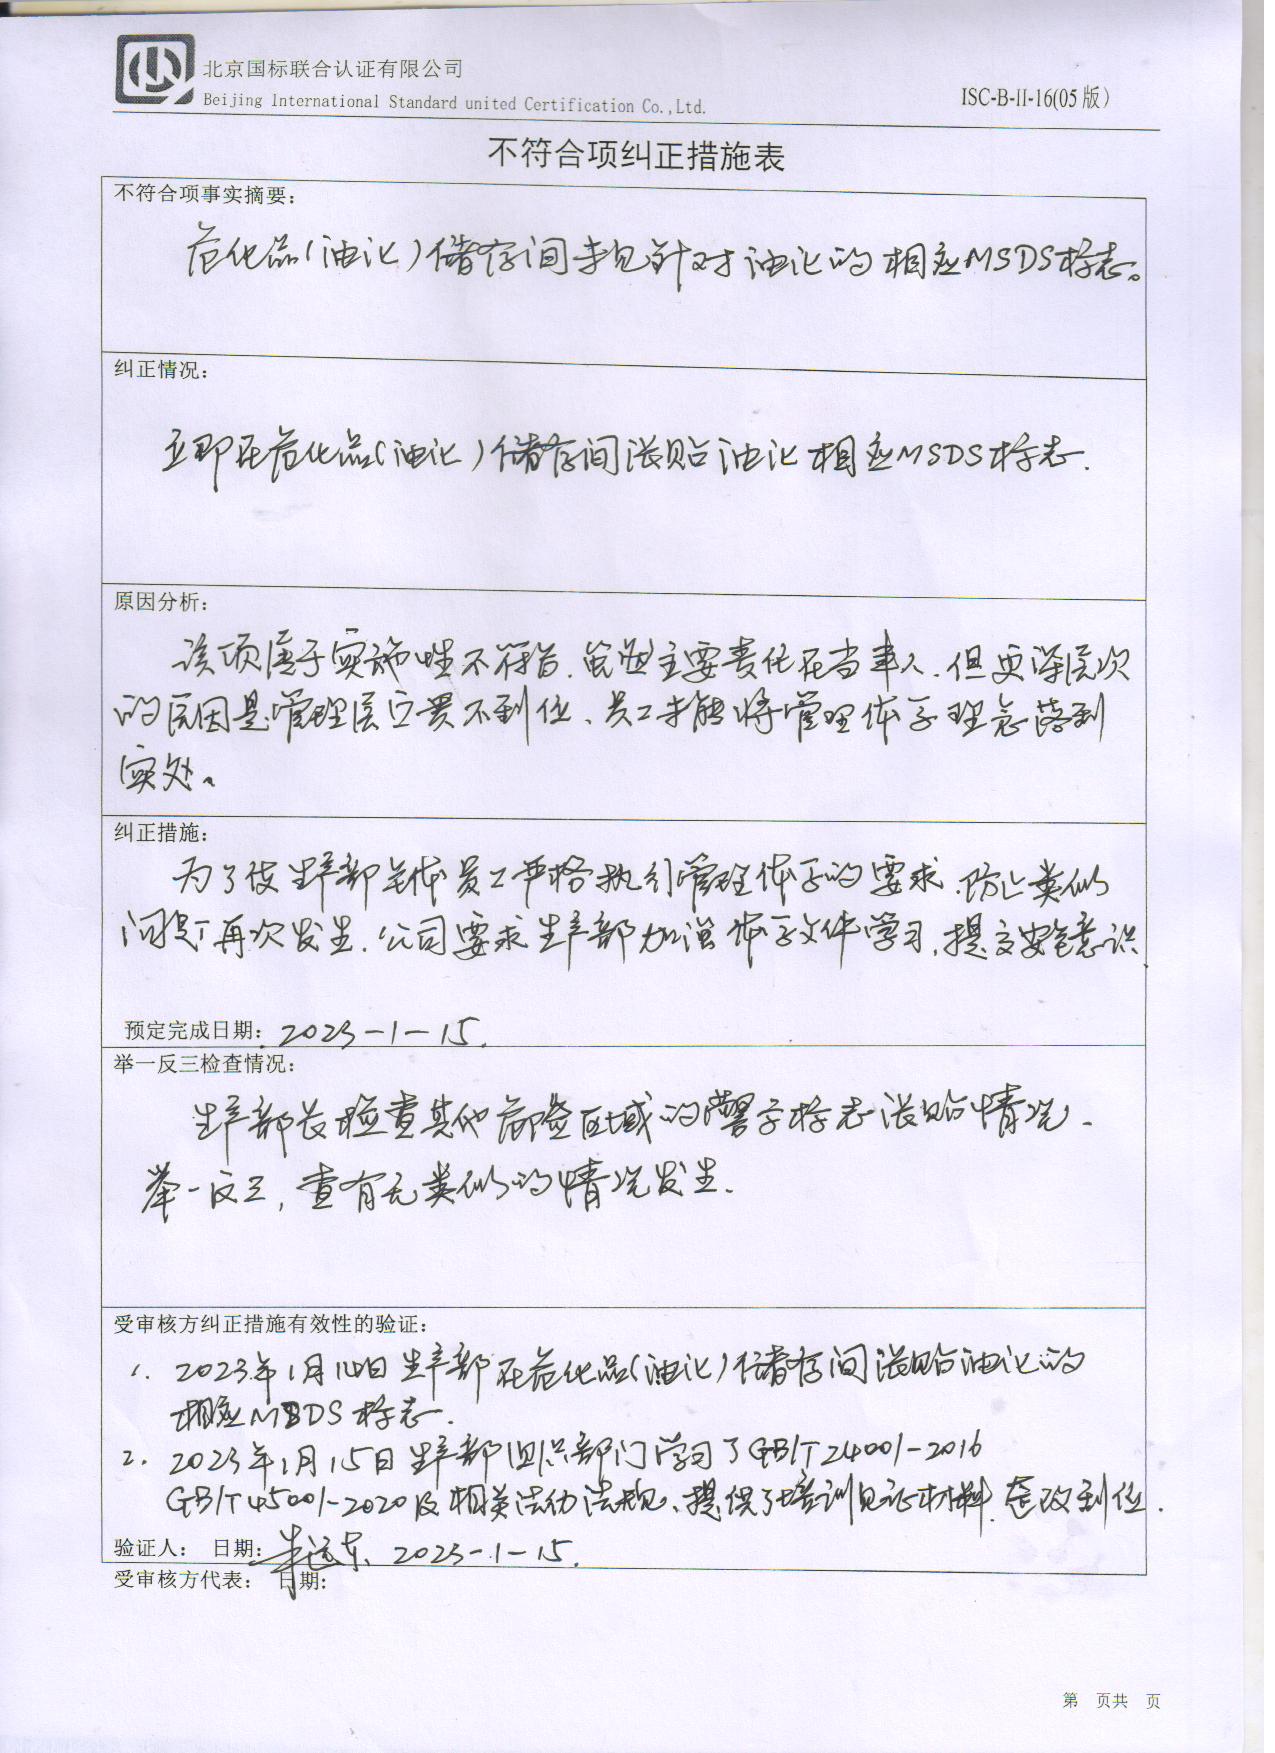 北京国标联合认证有限公司
Beijing International Standard united Certification Co.,Ltd.
ISC-B-II-16(05版)
不符合项纠正措施表
不符合项事实摘要：
危化品(油化)储存间未见针对油化的相应MSDS标志。
纠正情况：
立即在危化品(油化)储存间张贴油化相应MSDS标志.
原因分析：
该项属于实施性不符合.虽然主要责任在当事人.但更深层次
的原因是管理层宣贯不到位、员工未能将管理体系理念落到
实处。
纠正措施：
为了使生产部全体员工严格执行管理体系的要求.防止类似
问题再次发生.公司要求生产部加强体系文件学习.提高安全意识.
预定完成日期：2023-1-15.
举一反三检查情况：
生产部长检查其他危险区域的警示标志张贴情况、
举一反三,查有无类似的情况发生.
受审核方纠正措施有效性的验证：
1. 2023年1月10日生产部在危化品(油化)储存间张贴油化的
相应MSDS标志.
2. 2023年1月15日生产部组织部门学习了GB/T24001-2016
GB/T45001-2020及相关法律法规、提供了培训见证材料.整改到位.
验证人： 日期： 2023-1-15.
受审核方代表： 日期：
第 页共 页